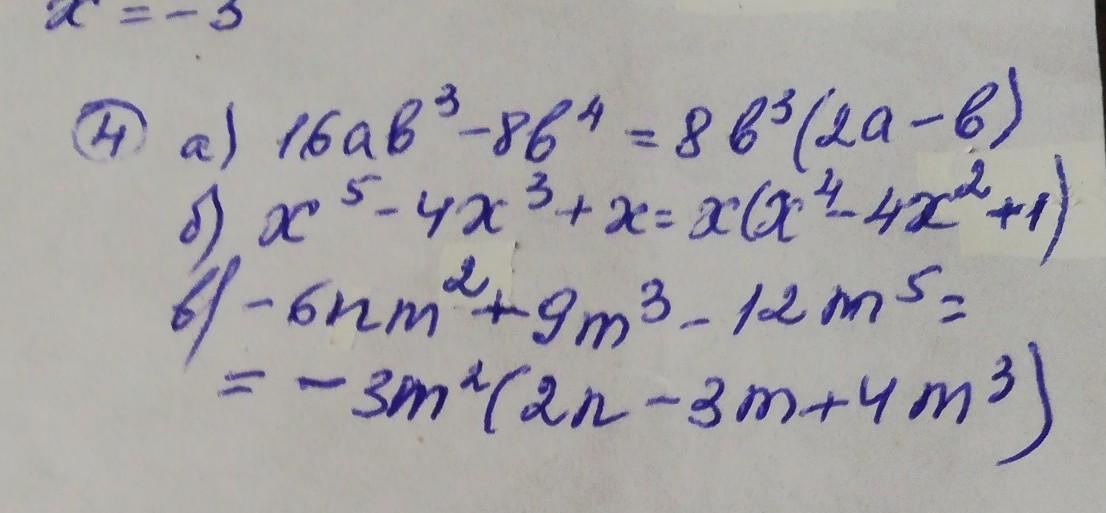 x = -3
④ а) 16ab³ - 8b⁴ = 8b³(2a - b)
б) x⁵ - 4x³ + x = x(x⁴ - 4x² + 1)
в) - 6nm² + 9m³ - 12m⁵ =
= - 3m²(2n - 3m + 4m³)